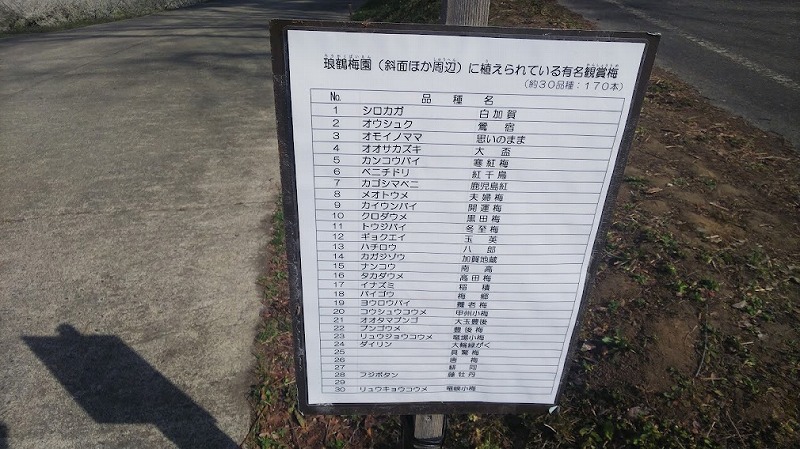 琅鶴梅園(斜面ほか周辺)に植えられている有名観賞梅
(約30品種:170本)
No. 品種名
1 シロカガ 白加賀
2 オウシュク 鶯宿
3 オモイノママ 思いのまま
4 オオサカズキ 大盃
5 カンコウバイ 寒紅梅
6 ベニチドリ 紅千鳥
7 カゴシマベニ 鹿児島紅
8 メオトウメ 夫婦梅
9 カイウンバイ 開運梅
10 クロダウメ 黒田梅
11 トウジバイ 冬至梅
12 ギョクエイ 玉英
13 ハチロウ 八郎
14 カガジゾウ 加賀地蔵
15 ナンコウ 南高
16 タカダウメ 高田梅
17 イナズミ 稲積
18 バイゴウ 梅郷
19 ヨウロウバイ 養老梅
20 コウシュウコウメ 甲州小梅
21 オオタマブンゴ 大玉豊後
22 ブンゴウメ 豊後梅
23 リュウジョウコウメ 竜場小梅
24 ダイリン 大輪緑がく
25 呉服梅
26 唐梅
27
28 フジボタン 藤牡丹
29
30 リュウキョウコウメ 竜峡小梅